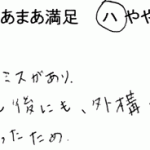 あまあ満足 ハ やや
ミスがあり、
後にも、外構
ったため